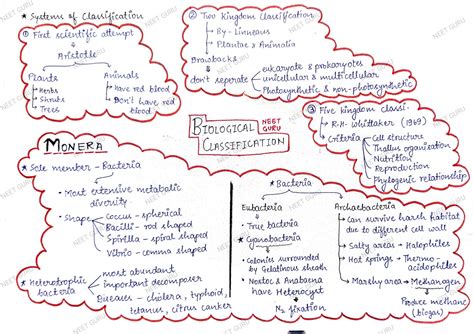 ★ Systems of Classification
① First scientific attempt
Aristotle
Plants
Animals
Herbs
Shrubs
Trees
Have red blood
Don't have red blood
② Two Kingdom Classification
- By - Linneaus
- Plantae & Animalia
Drawbacks
don't seperate
eukaryote & prokaryotes
unicellular & multicellular
Photosynthetic & non-photosynthetic
③ Five kingdom classi.
- R.H. Whittaker (1969)
- Criteria
Cell structure
Thallus organisation
Nutrition
Reproduction
Phylogenic relationship
BIOLOGICAL
CLASSIFICATION
NEET
GURU
MONERA
★ Sole member - Bacteria
• Most extensive metabolic
diversity
• Shape
Coccus - spherical
Bacilli - rod shaped
Spirilla - spiral shaped
Vibrio - comma shaped
★ Heterotrophic
bacteria
most abundant
important decomposer
Diseases - cholera, typhoid,
tetanus, citrus canker
★ Bacteria
Eubacteria
• True bacteria
★ Cyanobacteria
• Colonies surrounded
by Gelatinous sheath
• Nostoc & Anabaena
have Heterocyst
N₂ fixation
Archaebacteria
• Can survive harsh habitat
due to different cell wall
• Salty areas - Halophiles
• Hot springs - Thermo-
acidophiles
• Marshy area - Methanogen
Produce methane
(biogas)